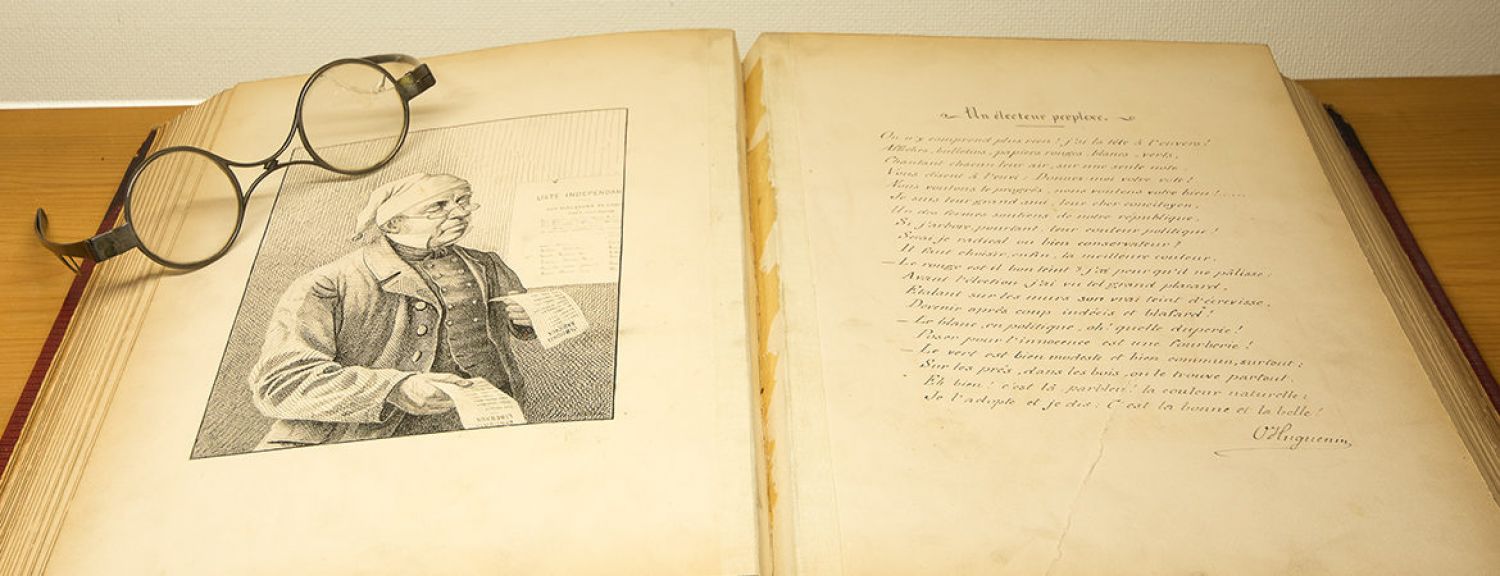 LISTE INDEPENDAN
Un électeur perplexe.
On n'y comprend plus rien! j'ai la tête à l'envers!
Affiches, bulletins, papiers rouges, blancs, verts,
Chantant chacun leur air, sur une seule note,
Vous disent à l'envi: Donnez-moi votre vote!
Nous voulons le progrès, nous voulons votre bien!....
Je suis leur grand ami, leur cher concitoyen,
Un des fermes soutiens de notre république,
Si j'arbore pourtant leur couleur politique!
Serai-je radical ou bien conservateur?
Il faut choisir, enfin, la meilleure couleur.
— Le rouge est il bon teint? j'ai peur qu'il ne pâlisse;
Avant l'élection j'ai vu tel grand placard,
Etalant sur les murs son vrai teint d'écrevisse,
Devenir après coup indécis et blafard!
— Le blanc, en politique, oh! quelle duperie!
Poser pour l'innocence est une fourberie!
— Le vert est bien modeste et bien commun, surtout;
Sur les prés, dans les bois, on le trouve partout.
Eh bien! c'est là, parbleu! la couleur naturelle;
Je l'adopte et je dis: C'est la bonne et la belle!
O Huguenin